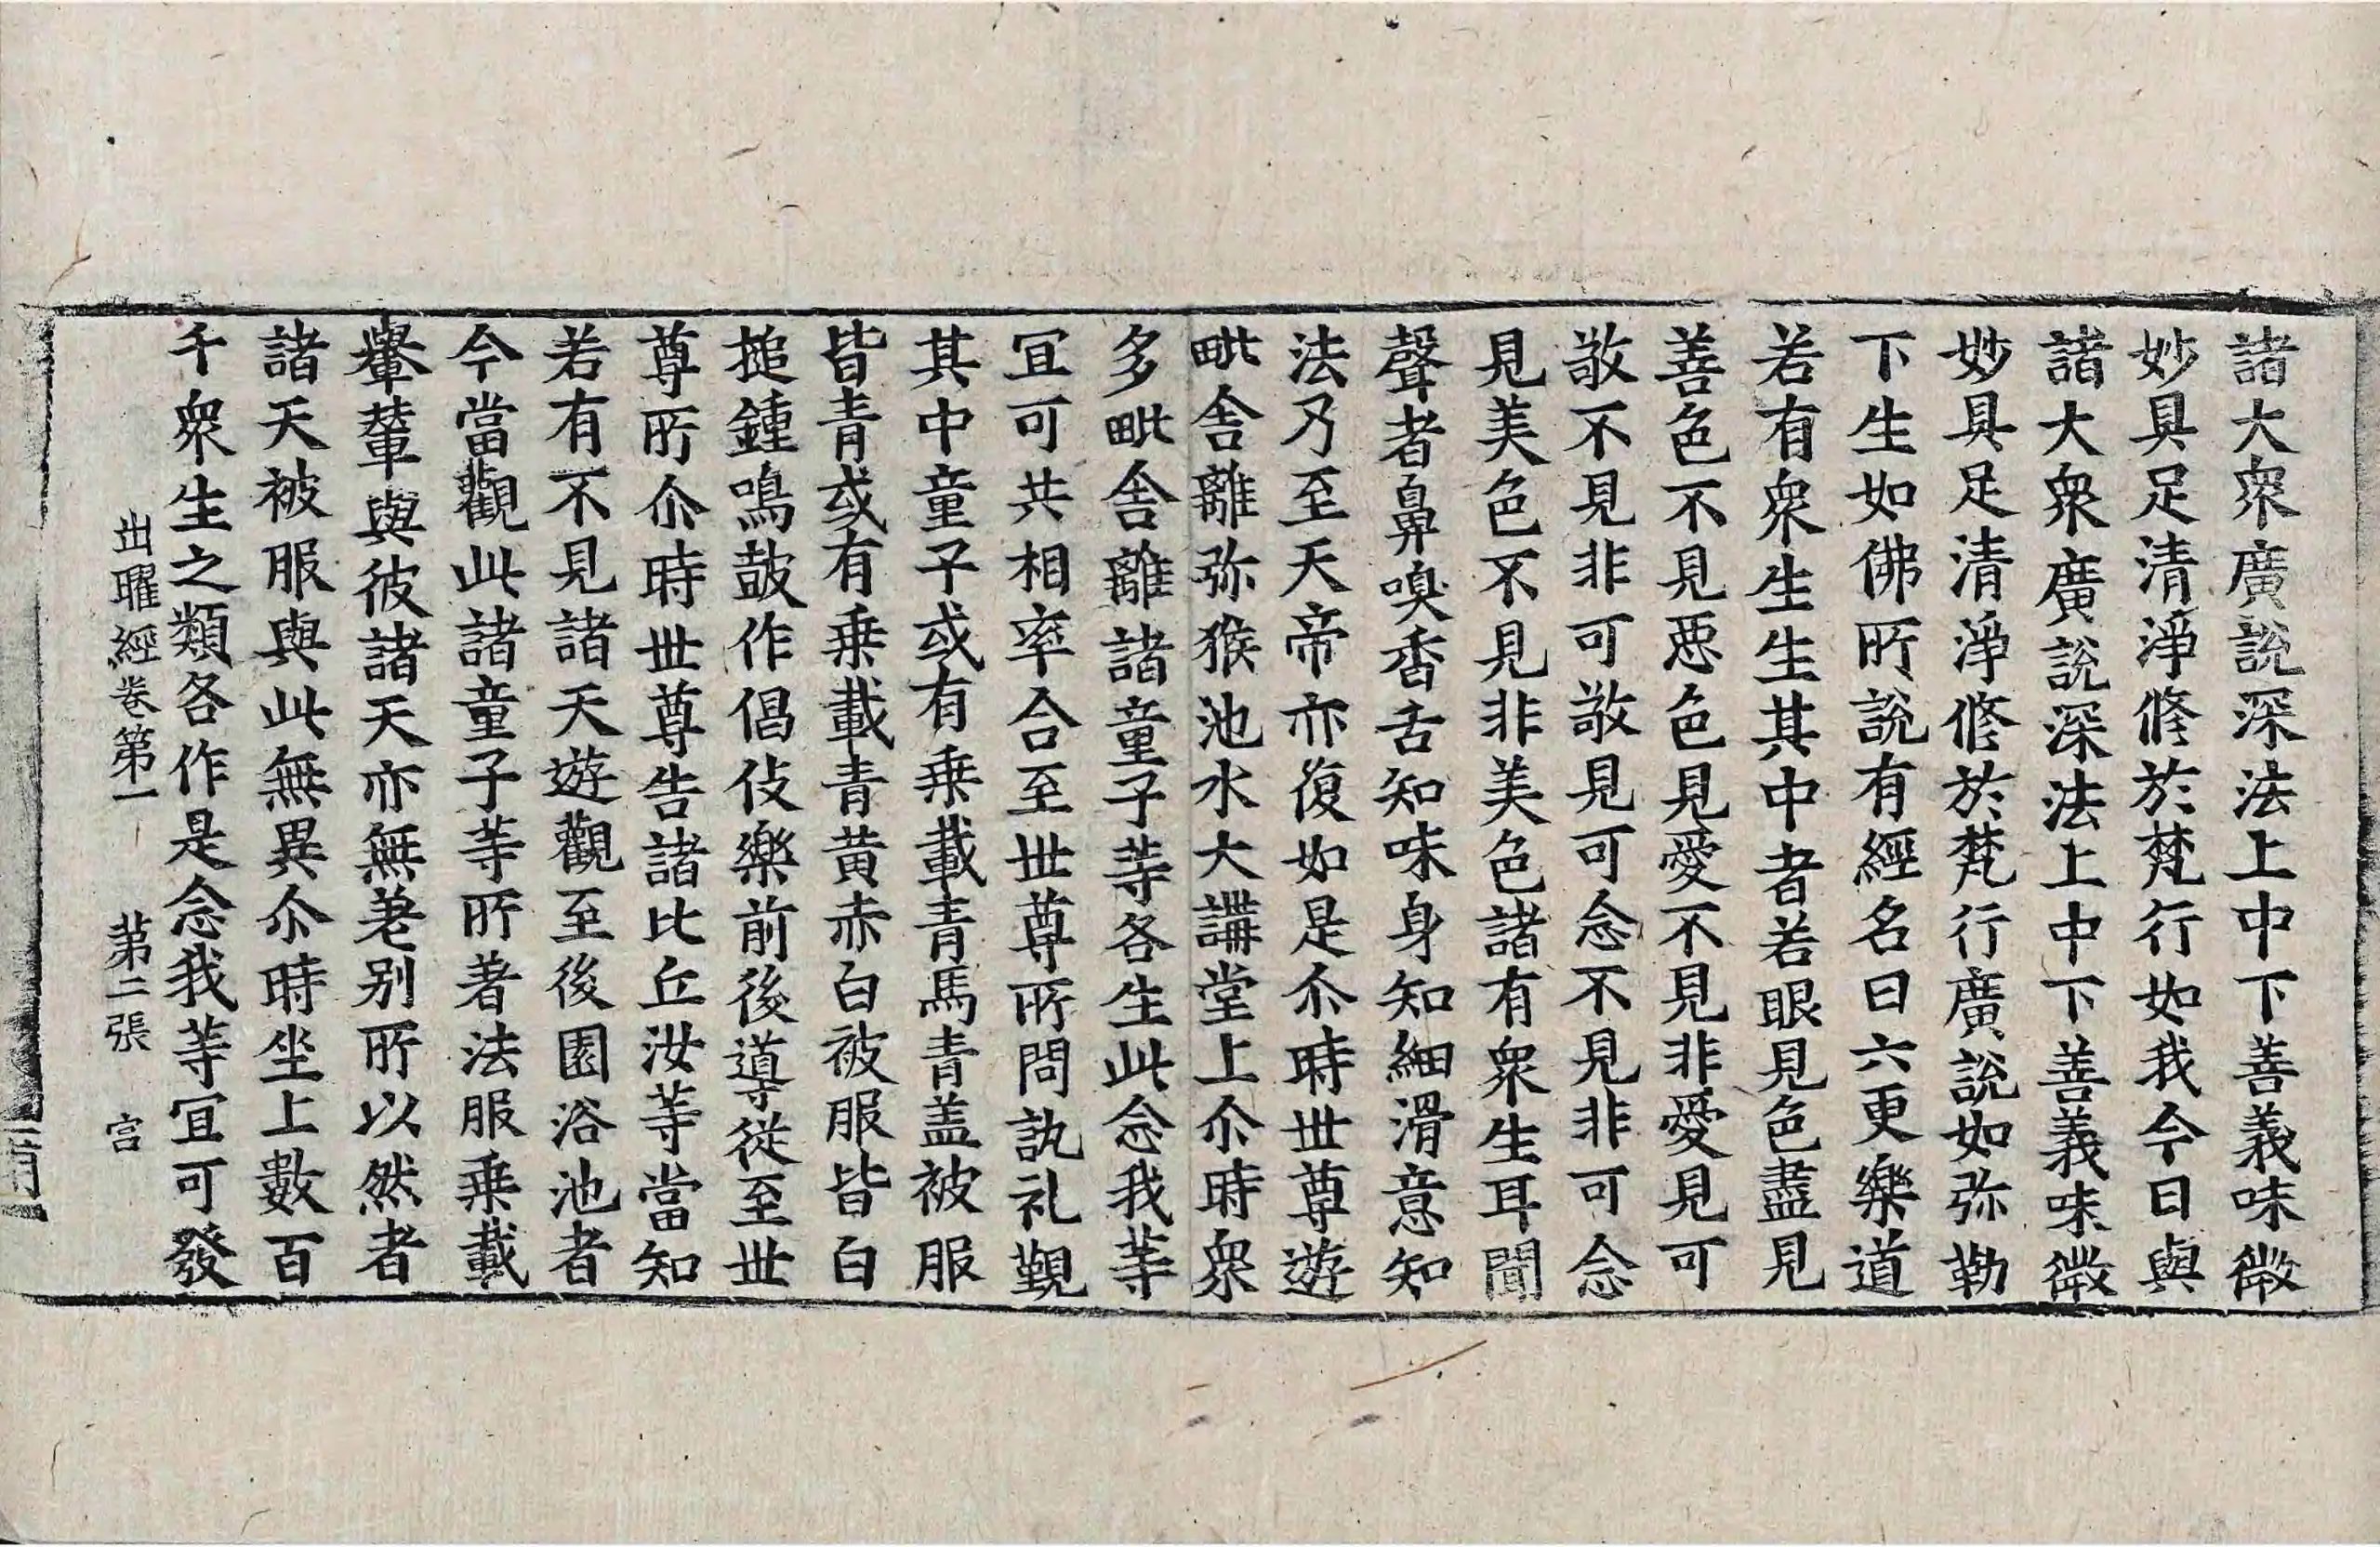 諸大衆廣說深法上中下善義味微
妙具足清淨修於梵行如我今日與
諸大衆廣說深法上中下善義味微
妙具足清淨修於梵行廣說如弥勒
下生如佛所說有經名曰六更樂道
若有衆生生其中者若眼見色盡見
善色不見惡色見愛不見非愛見可
敬不見非可敬見可念不見非可念
見美色不見非美色諸有衆生耳聞
聲者鼻嗅香舌知味身知細滑意知
法乃至天帝亦復如是尒時世尊遊
毗舍離弥猴池水大講堂上尒時衆
多毗舍離諸童子等各生此念我等
冝可共相率合至世尊所問訊礼覲
其中童子或有乗載青馬青盖被服
皆青或有乗載青黄赤白被服皆白
搥鍾鳴鼓作倡伎樂前後導從至世
尊所尒時世尊告諸比丘汝等當知
若有不見諸天遊觀至後園浴池者
今當觀此諸童子等所著法服乗載
轝輦與彼諸天亦無差别所以然者
諸天被服與此無異尒時坐上數百
千衆生之類各作是念我等冝可發
出曜經卷第一 第二張 宫